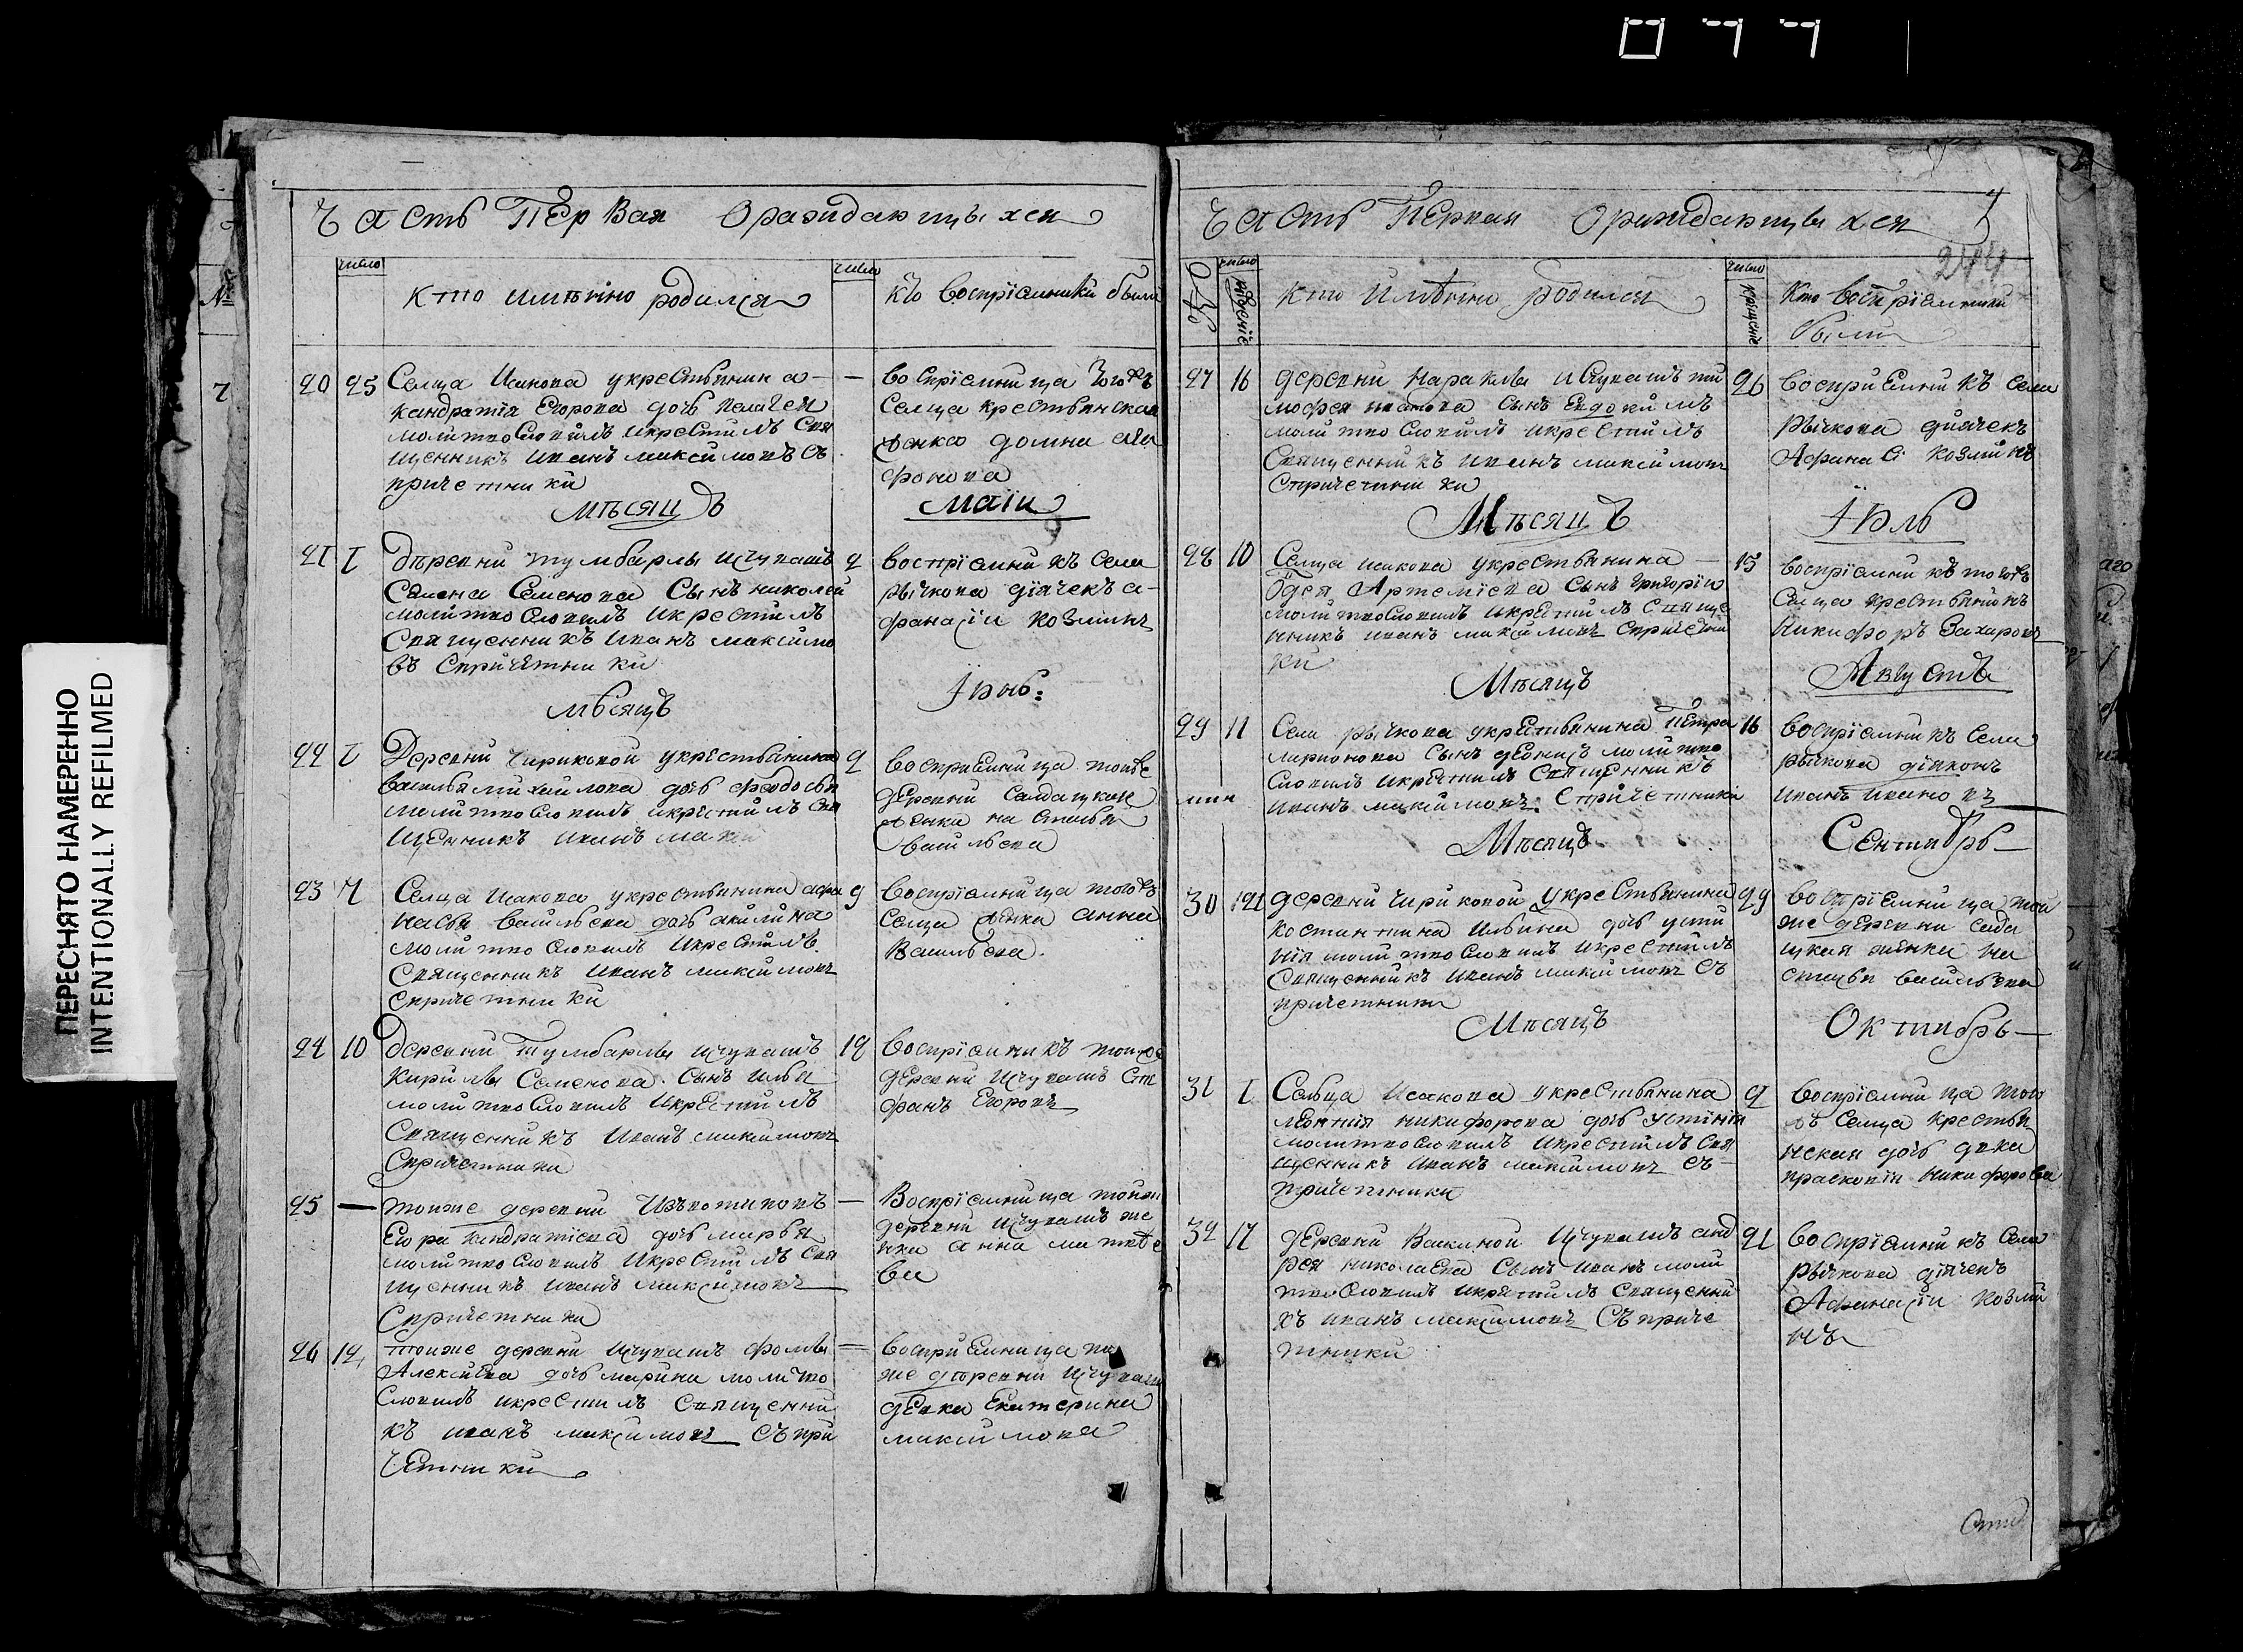 ПЕРЕСНЯТО НАМЕРЕННО
INTENTIONALLY REFILMED
Часть Первая О раждающыхся
число
Кто имянно родился
число
кто воспрїемники были
20 25 Селца Исакова укрестьянина
кандратїя Егорова дочь пелагея
молитвословилъ икрестилъ Свя
щенникъ иванъ максимовъ съ
причетники
— воспрїемница тогожъ
Селца крестьянская
женка домна
фонова
мѣсяцъ маїи
21 1 Дѣревни тумбарлы ичувашъ
Семена Семенова Сынъ николай
молитвословилъ икрестилъ
Священникъ Иванъ максимо
въ Спричетники
2 воспрїемникъ села
рычкова дїячекъ а-
фанасїи козминъ
мѣсяцъ Їюнь:
22 1 Деревни Чириковой укрестьянина
василья михайлова дочь феодосья
молитвословилъ икрестилъ Свя
щенникъ иванъ макси
2 восприемница тоиже
деревни Салдацкая
женка настасья
васильева
23 7 Селца Исакова укрестьянина афа
насья васильева дочь акилина
молитвословилъ икрестилъ
Священникъ иванъ максимовъ
спричетники
9 воспрїемница тогожъ
селца женка анна
Васильева.
24 10 Деревни Тумбарлы ичувашъ
кирилы Семенова. Сынъ илья
молитвословилъ икрестилъ
Священникъ Иванъ максимовъ
Спричетники
12 воспрїемникъ тоиже
деревни ичувашъ Сте
фанъ Егоровъ
25 — тоиже деревни
Егора кандратїева дочь марья
молитвословилъ икрестилъ Свя
щенникъ иванъ максимовъ
Спричетники
— Воспрїемница тоиже
деревни ичувашъ же
нка анна матвѣе
ва
26 14 тоиже деревни ичувашъ фомы
Алексиева дочь марина молитво
словилъ икрестилъ священни
къ иванъ максимовъ Съ при
четники
— восприемница то
же деревни ичуваш
девка Екатерина
максимова
Часть Первая О раждающыхся
244
число рожденїе
Кто имянно родился
число крещенїе
Кто воспрїемники
были
27 16 деревни караклы ичувашъ ти
мофея иванова сынъ Евдокимъ
молитвословилъ икрестилъ
Священникъ иванъ максимовъ
Спричетники
26 восприемникъ села
рычкова дїячекъ
Афанасї козминъ
Мѣсяцъ Їюль
28 10 Селца исакова укрестьянина
Артемїева сынъ григорїи
молитвословилъ икрестилъ Свяще
нникъ иванъ максимовъ спричетни
ки
15 воспрїемникъ тогожъ
Селца крестьянинъ
Никифоръ Захаровъ
Мѣсяцъ Августъ
29 11 Села рычкова укрестьянина Петра
ларионова сынъ денисъ молитво
словилъ икрестилъ Священникъ
иванъ максимовъ Спричетники
16 воспрїемникъ Села
рычкова дїяконъ
иванъ ивановъ
Мѣсяцъ Сентябрь
30 деревни Чириковой укрестьянина
костантина Ильина дочь усти
нїя молитвословилъ икрестилъ
Священникъ иванъ максимовъ Съ
причетники
29 воспрїемница той
же деревни салда
цкая женка на
стасья васильева
Мѣсяцъ Октябрь
31 1 Сельца Исакова укрестьянина
леонтия никифорова дочь устїнїя
молитвословилъ икрестилъ Свя
щенникъ иванъ максимовъ Съ
причетники
2 воспрїемница того
жъ селца крестья
нская дочь девка
прасковїя никифорова
32 17 деревни Ваклиной ичувашъ анд
рея николаева Сынъ иванъ моли
твословилъ икрестилъ Священни
къ иванъ максимовъ Съ приче
тники
21 воспрїемникъ Села
Рычкова дїячекъ
Афанасїи козми
нъ